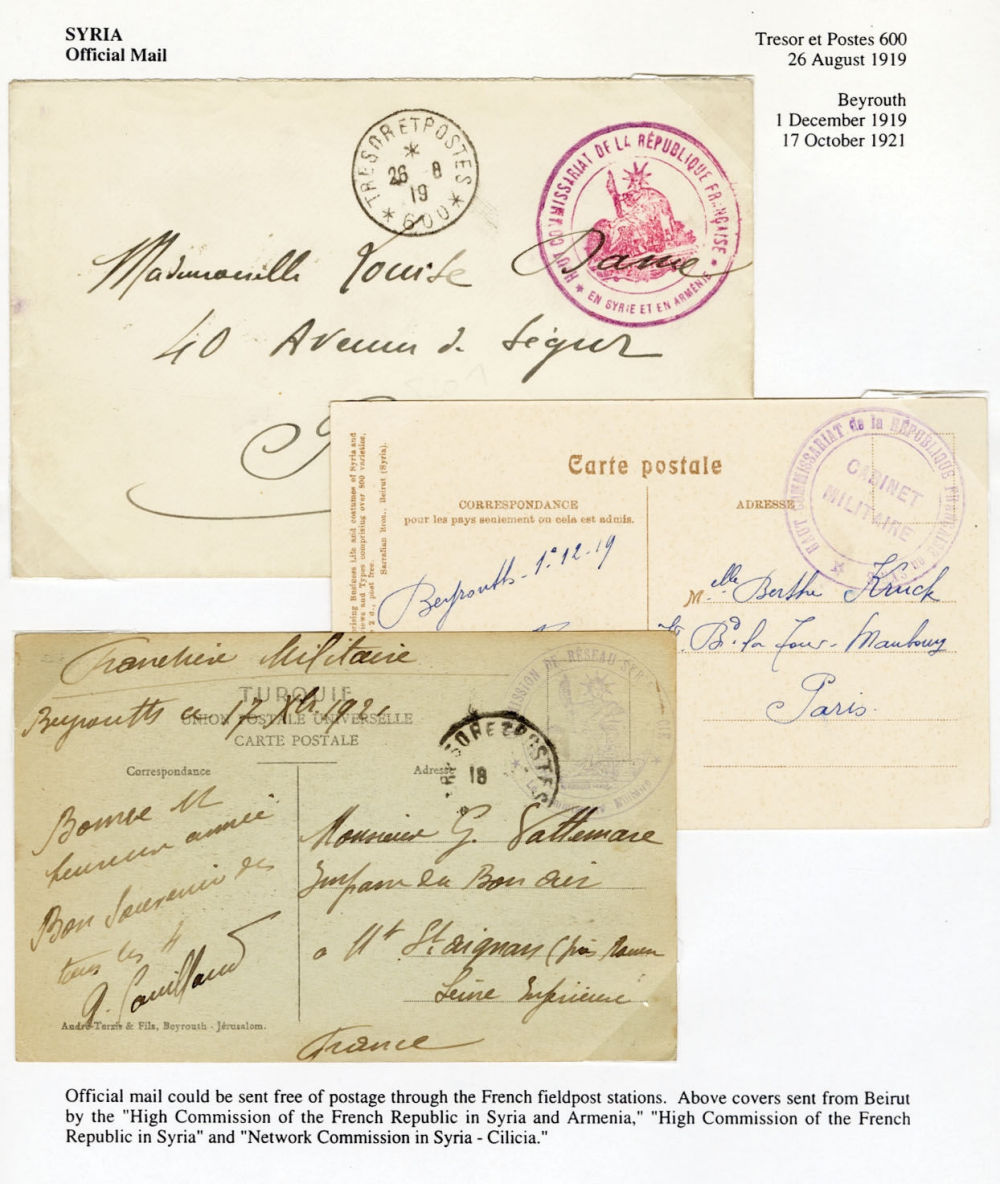 SYRIA
Official Mail
Tresor et Postes 600
26 August 1919
Beyrouth
1 December 1919
17 October 1921
TRESOR ET POSTES
*
26 8
19
* 600 *
HAUT COMMISSARIAT DE LA RÉPUBLIQUE FRANÇAISE
* EN SYRIE ET EN ARMÉNIE *
Mademoiselle Louise
40 Avenue de Ségur
rising Bedouins Life and costumes of Syria and
views and Types comprising over 800 varieties,
2 d., post free.
Sarrafian Bros., Beirut (Syria).
Carte postale
CORRESPONDANCE
pour les pays seulement ou cela est admis.
ADRESSE
HAUT COMMISSARIAT de la RÉPUBLIQUE FRANÇAISE
CABINET
MILITAIRE
Beyrouth - 1-12-19
Melle Berthe Kruck
Bd la Tour-Maubourg
Paris.
Franchise Militaire
TURQUIE
Beyrouth ce 17 Xbre 1921
UNION POSTALE UNIVERSELLE
CARTE POSTALE
Correspondance
Adresse
MISSION DE RÉSEAU
TRESOR ET POSTES
18
Bonne et
heureuse année
Bon Souvenir de
tous les 4
Monsieur G. Vattemare
Impasse du Bon air
à Mt St aignan (près Rouen
Seine Inférieure
France
André Terzis & Fils, Beyrouth - Jérusalem.
Official mail could be sent free of postage through the French fieldpost stations. Above covers sent from Beirut
by the "High Commission of the French Republic in Syria and Armenia," "High Commission of the French
Republic in Syria" and "Network Commission in Syria - Cilicia."